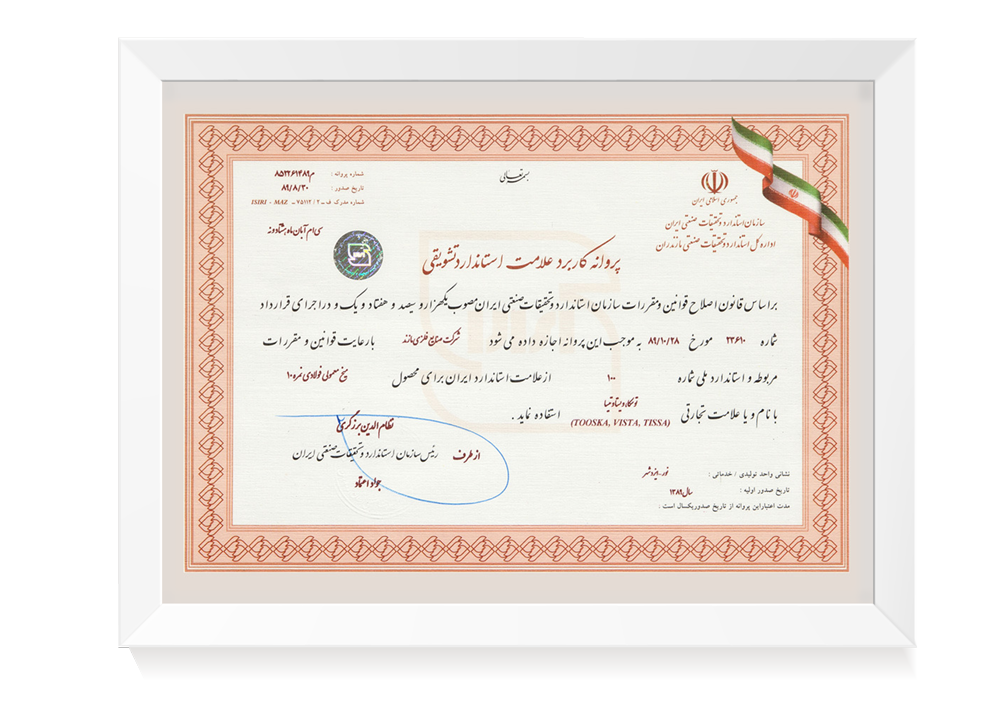 بسمه تعالی
جمهوری اسلامی ایران
سازمان استاندارد و تحقیقات صنعتی ایران
اداره کل استاندارد و تحقیقات صنعتی مازندران
شماره پروانه :
تاریخ صدور : ۸۹/۸/۳۰
شماره مدرک ف - ۷۵۱۱۲/۲ - ISIRI - MAZ
سی ام آبان ماه هشتاد و نه
پروانه کاربرد علامت استاندارد تشویقی
بر اساس قانون اصلاح قوانین و مقررات سازمان استاندارد و تحقیقات صنعتی ایران مصوب یکهزار و سیصد و هفتاد و یک و در اجرای قرارداد
شماره ۲۳۶۱۰ مورخ ۸۹/۱۰/۲۸ به موجب این پروانه اجازه داده می شود شرکت صنایع فلزی مازند با رعایت قوانین و مقررات
مربوطه و استاندارد ملی شماره ۱۰۰ از علامت استاندارد ایران برای محصول میخ معمولی فولادی نمره ۱۰
با نام و یا علامت تجارتی توسکا ویستا و تیسا استفاده نماید .
(TOOSKA, VISTA, TISSA)
نظام الدین برزگری
از طرف رئیس سازمان استاندارد و تحقیقات صنعتی ایران
جواد اعتماد
نشانی واحد تولیدی / خدماتی : نور-ایزدشهر
تاریخ صدور اولیه : سال ۱۳۸۹
مدت اعتبار این پروانه از تاریخ صدور یکسال است .